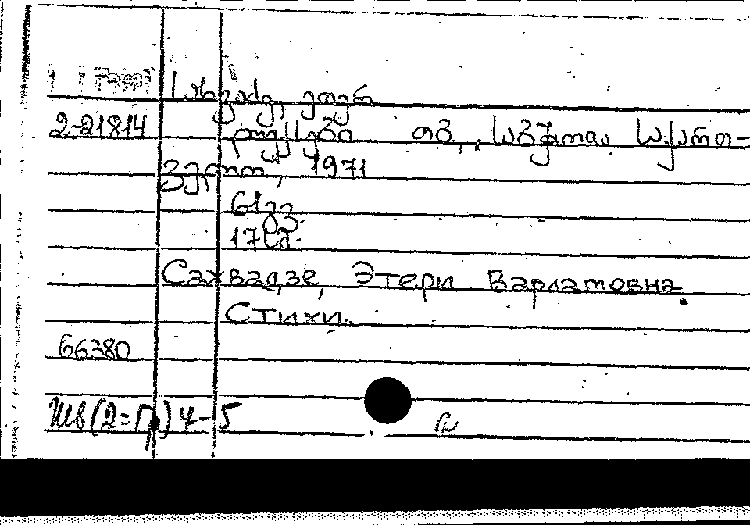 სახვაძე, ეთერ
2-21814 ლექსები თბ., საბჭოთა საქართ-
ველო, 1971
61გვ.
17სმ.
Сахвадзе, Этери Варламовна.
Стихи.
66380
Ш8(2=Гр)4-5